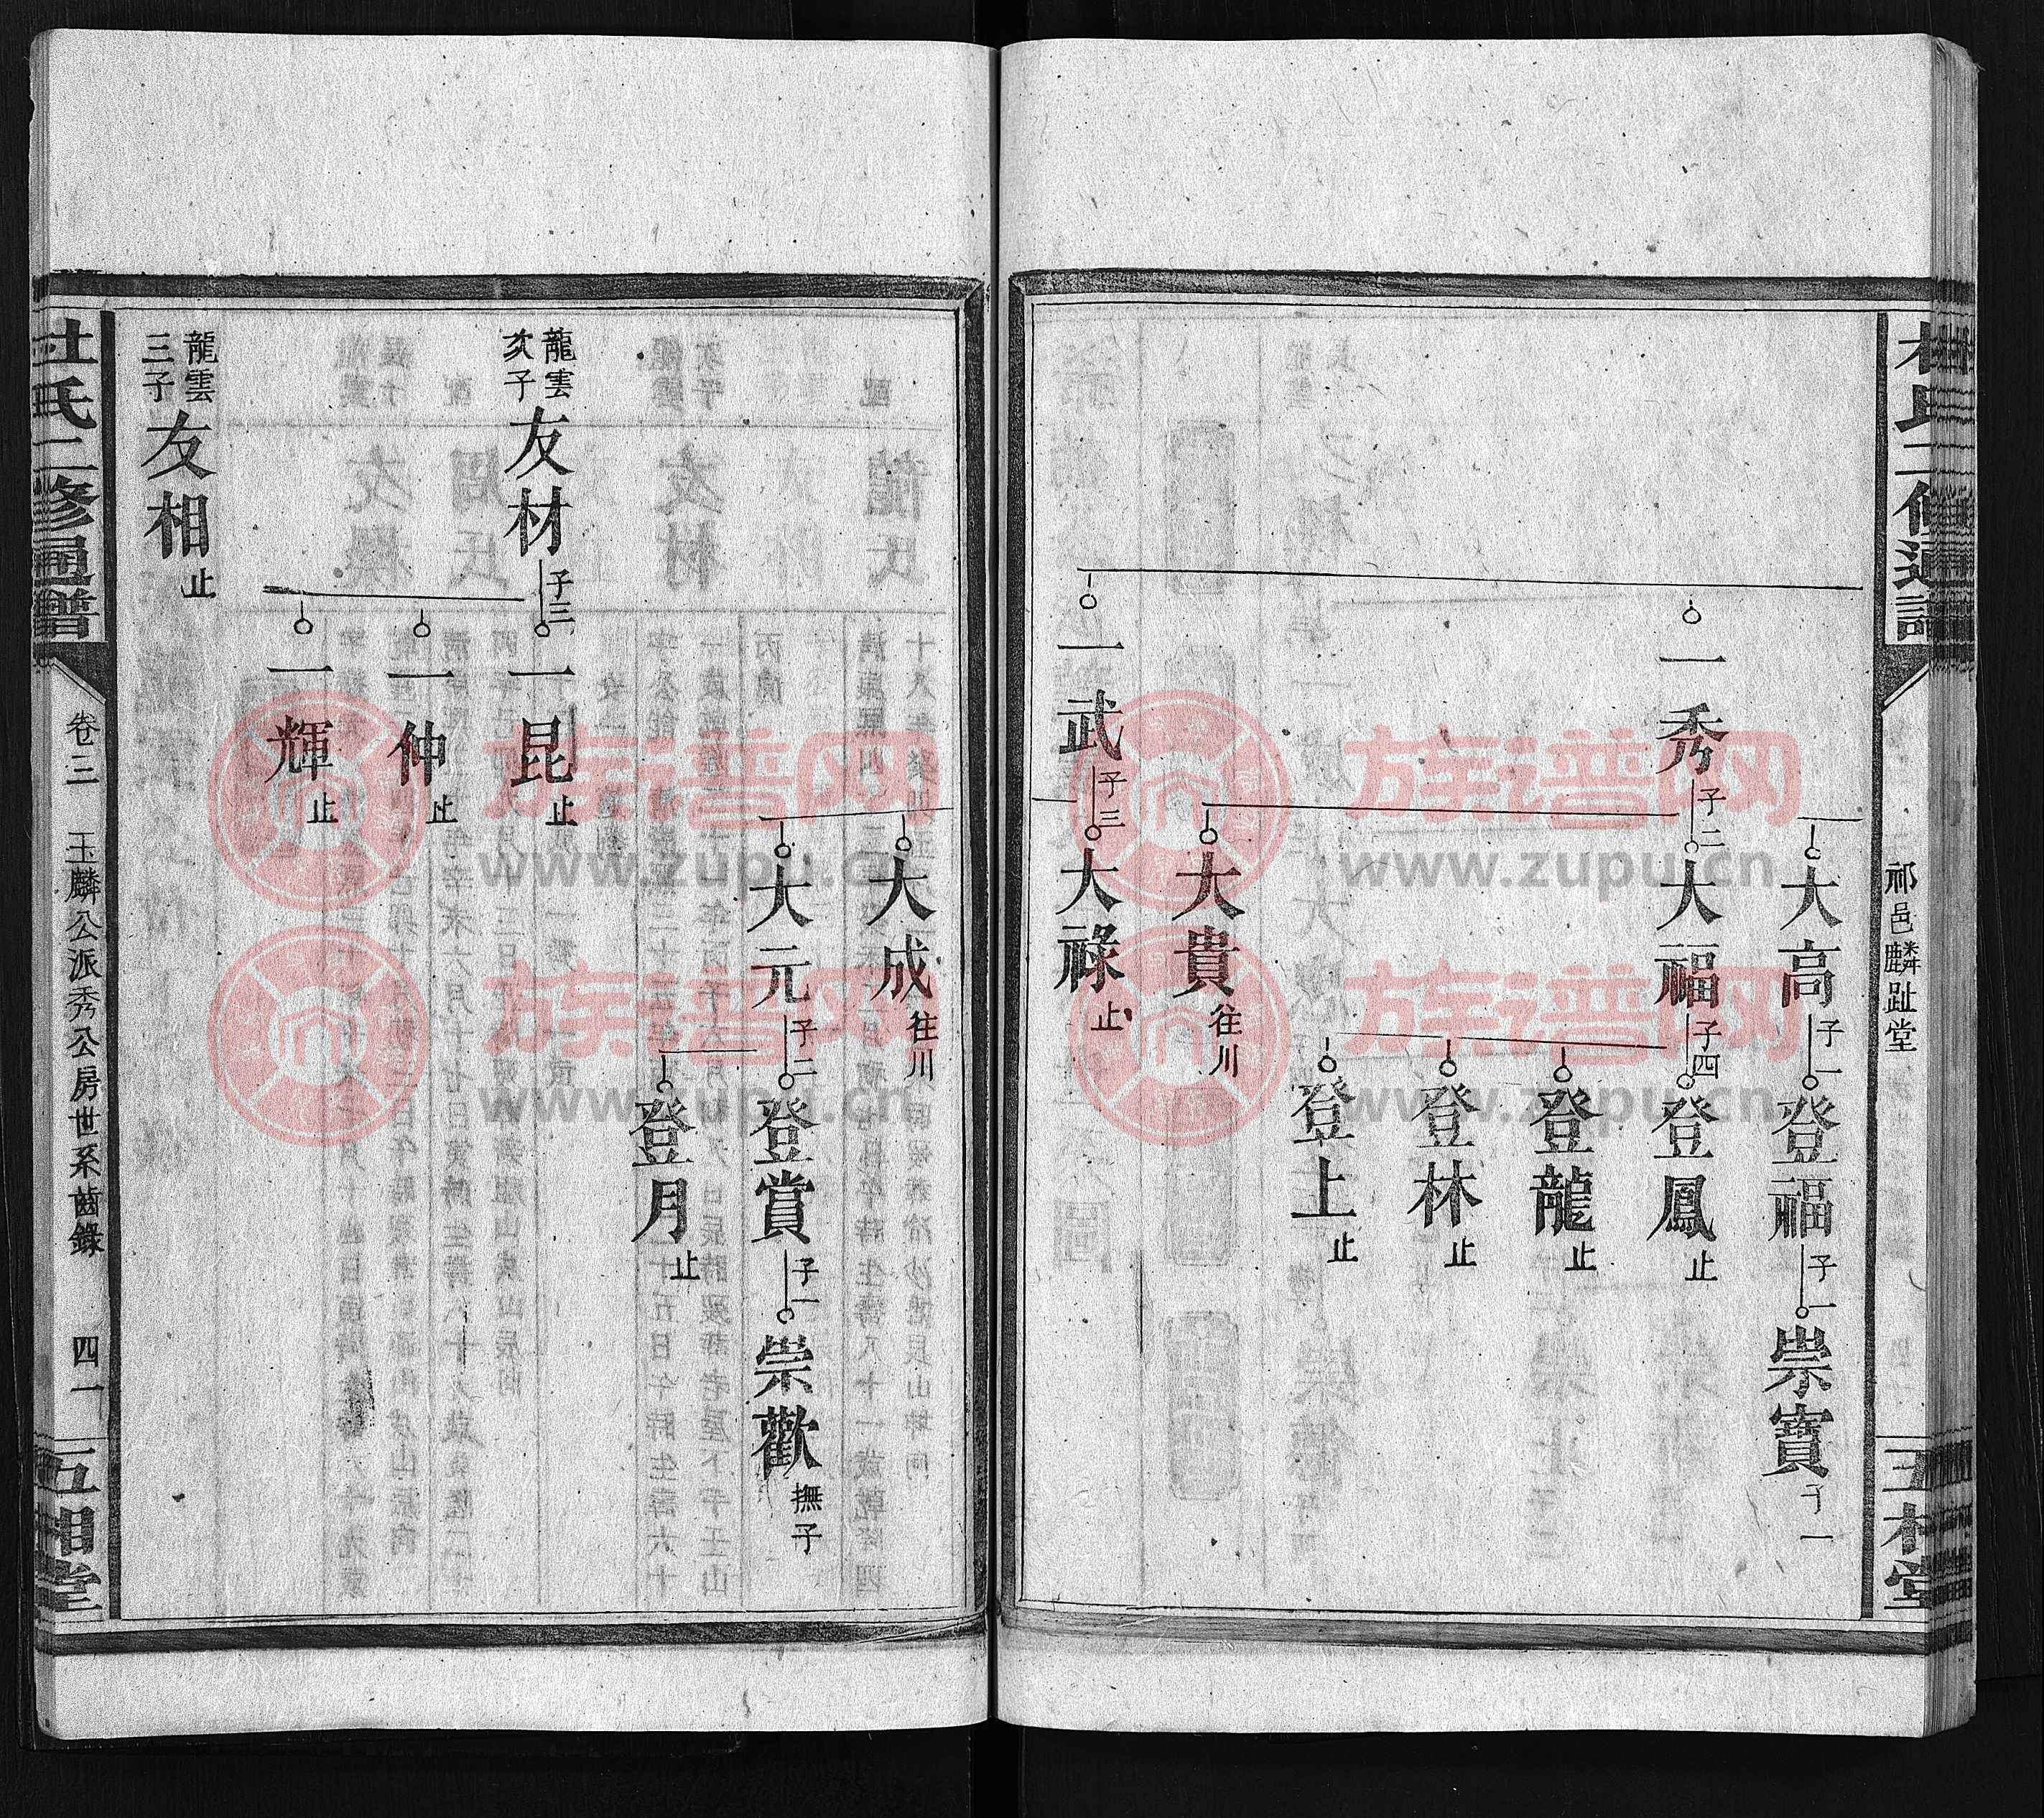 祁邑麟趾堂
大高 子一 登福 子一 崇寶 子一
一秀 子二 大福 子四 登鳳 止
登龍 止
登林 止
登上 止
大貴 往川
一武 子三 大祿 止
大成 往川
大元 子二 登賞 子一 崇歡 撫子
登月 止
龍雲次子 友材 子三 一昆 止
一仲 止
一輝 止
龍雲三子 友相 止
杜氏二修通譜 卷三 玉麟公派秀公房世系齒錄 四一 五相堂
族谱网
www.zupu.cn
族谱网
www.zupu.cn
族谱网
www.zupu.cn
族谱网
www.zupu.cn